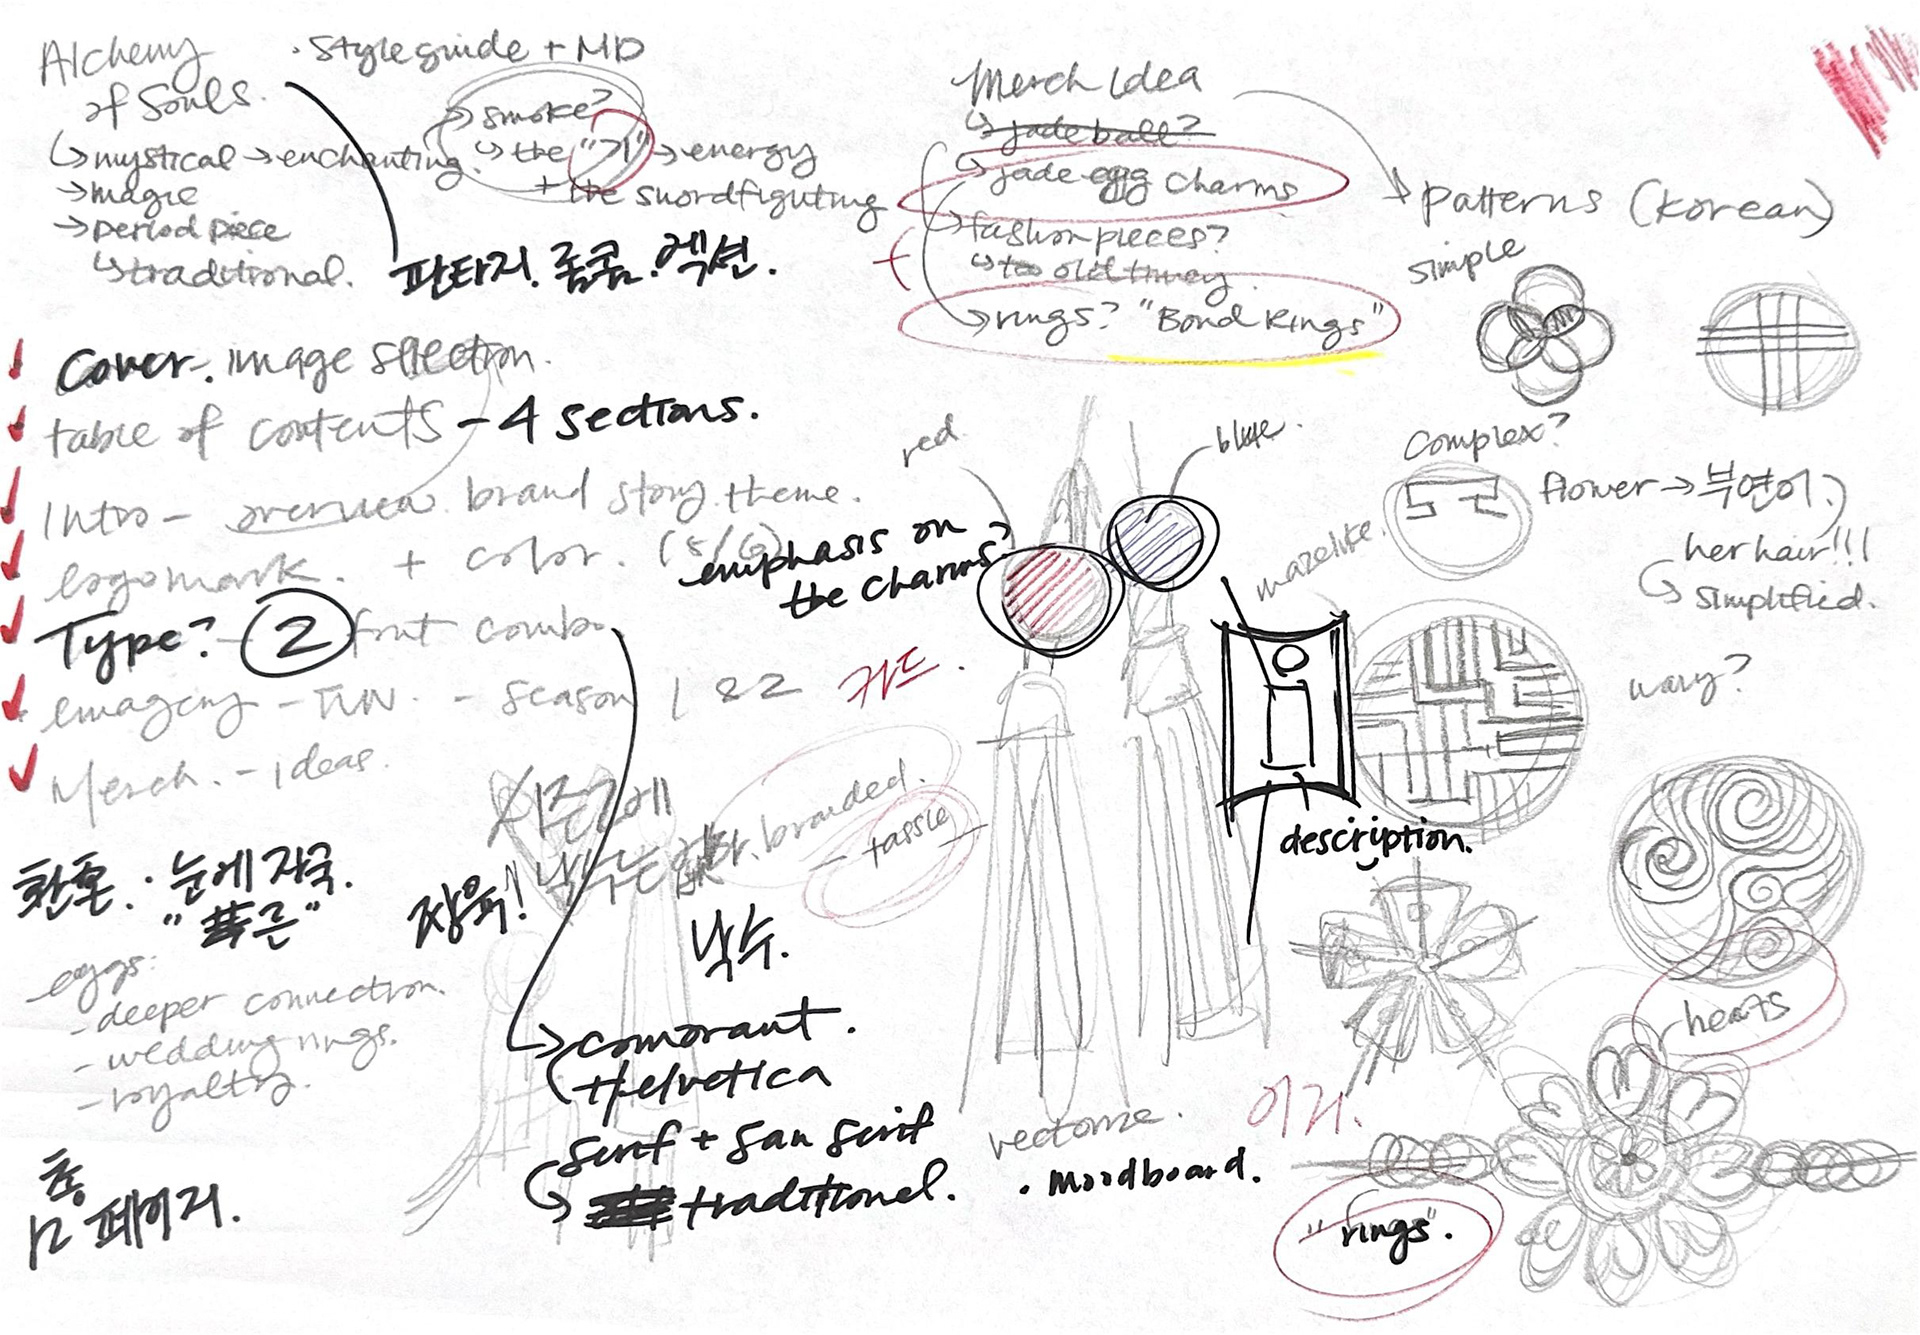 Alchemy
of Souls.
· Style guide + MD
→ smoke?
↳ the "기" → energy
+ the swordfighting
↳ mystical → enchanting.
→ magic
→ period piece
↳ traditional.
판타지. 롬콤. 액션.
Merch Idea
↳ jade ball?
↳ jade egg charms
→ fashion pieces?
↳ too old timey.
→ rings? "Bond Rings"
→ patterns (Korean)
simple
Complex?
flower → 부연이?
her hair!!!
↳ simplified.
mazelike.
wavy?
hearts
Cover. image selection.
table of contents - 4 sections.
Intro - overview brand story, theme.
logomark. + color. (5/6)
Type? - 2 font combo
imagery - TVN. - season 1 & 2
Merch. - ideas.
red
blue.
emphasis on
the charms?
카드.
description.
branded.
- tassle
시즌2에
낙수는
환혼 : 눈에 자국.
"푸른"
장욱!
낙수.
eggs:
- deeper connection.
- wedding rings.
- royalty.
→ comorant.
Helvetica
serif + san serif
↳ traditional.
총
12 페이지.
vectorize.
· moodboard.
이거.
"rings".